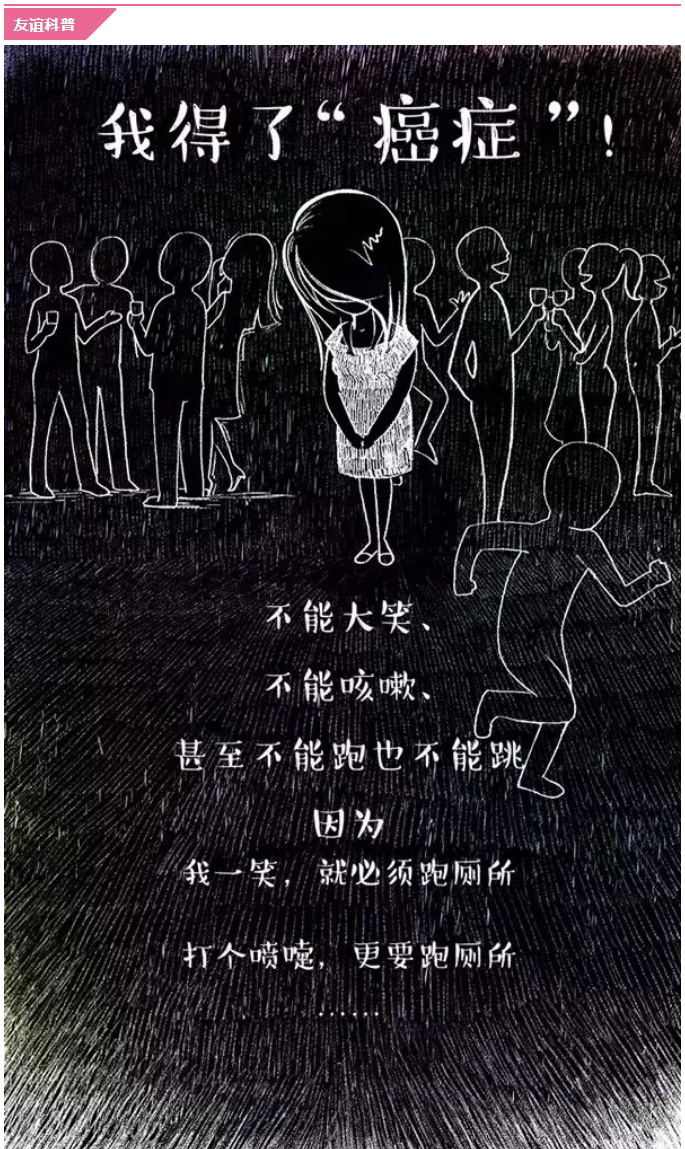 友谊科普
我得了“癌症”!
不能大笑、
不能咳嗽、
甚至不能跑也不能跳
因为
我一笑，就必须跑厕所
打个喷嚏，更要跑厕所
······